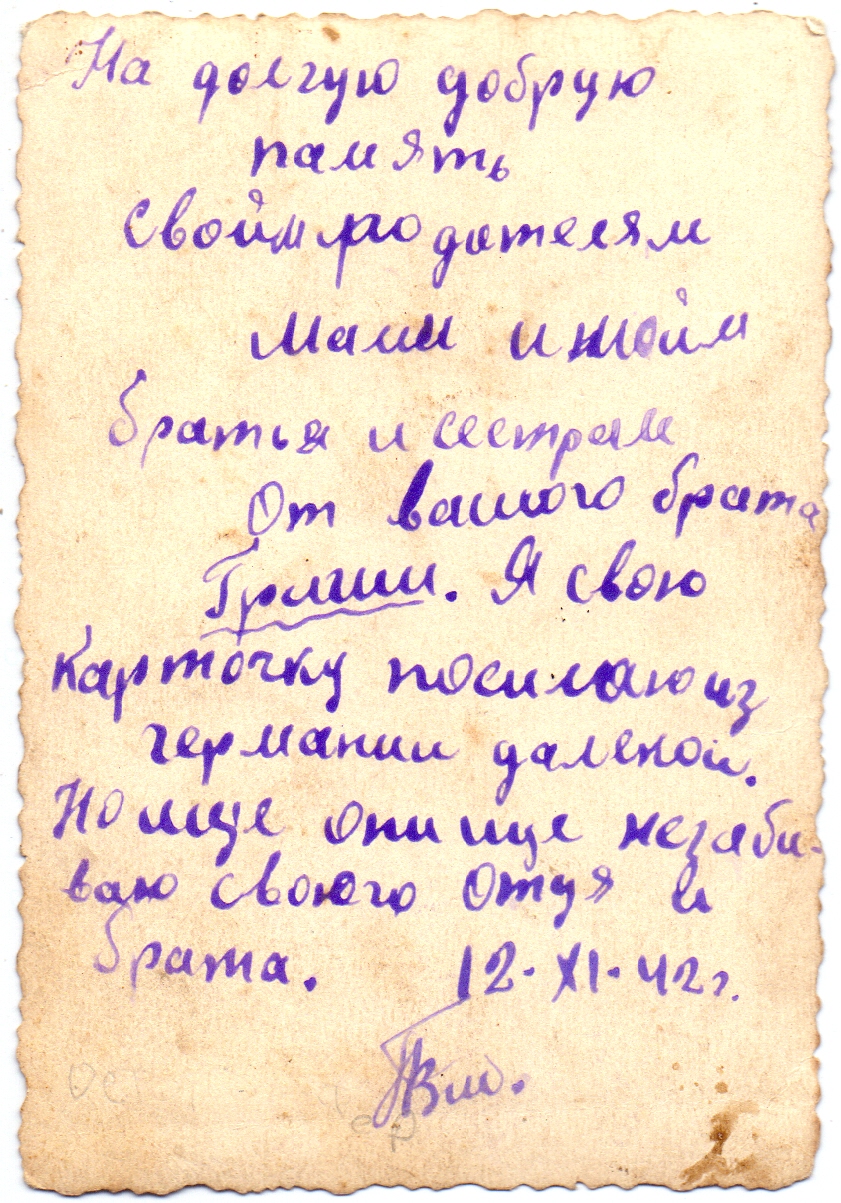 На долгую добрую
память
Своим родителям
Мами и моим
братья и сестрам
От вашого брата
Гриши. Я свою
карточку посилаю из
германии далекой.
Но ище они ище незаби-
ваю своюго Отця и
брата. 12. XI. 42 г.